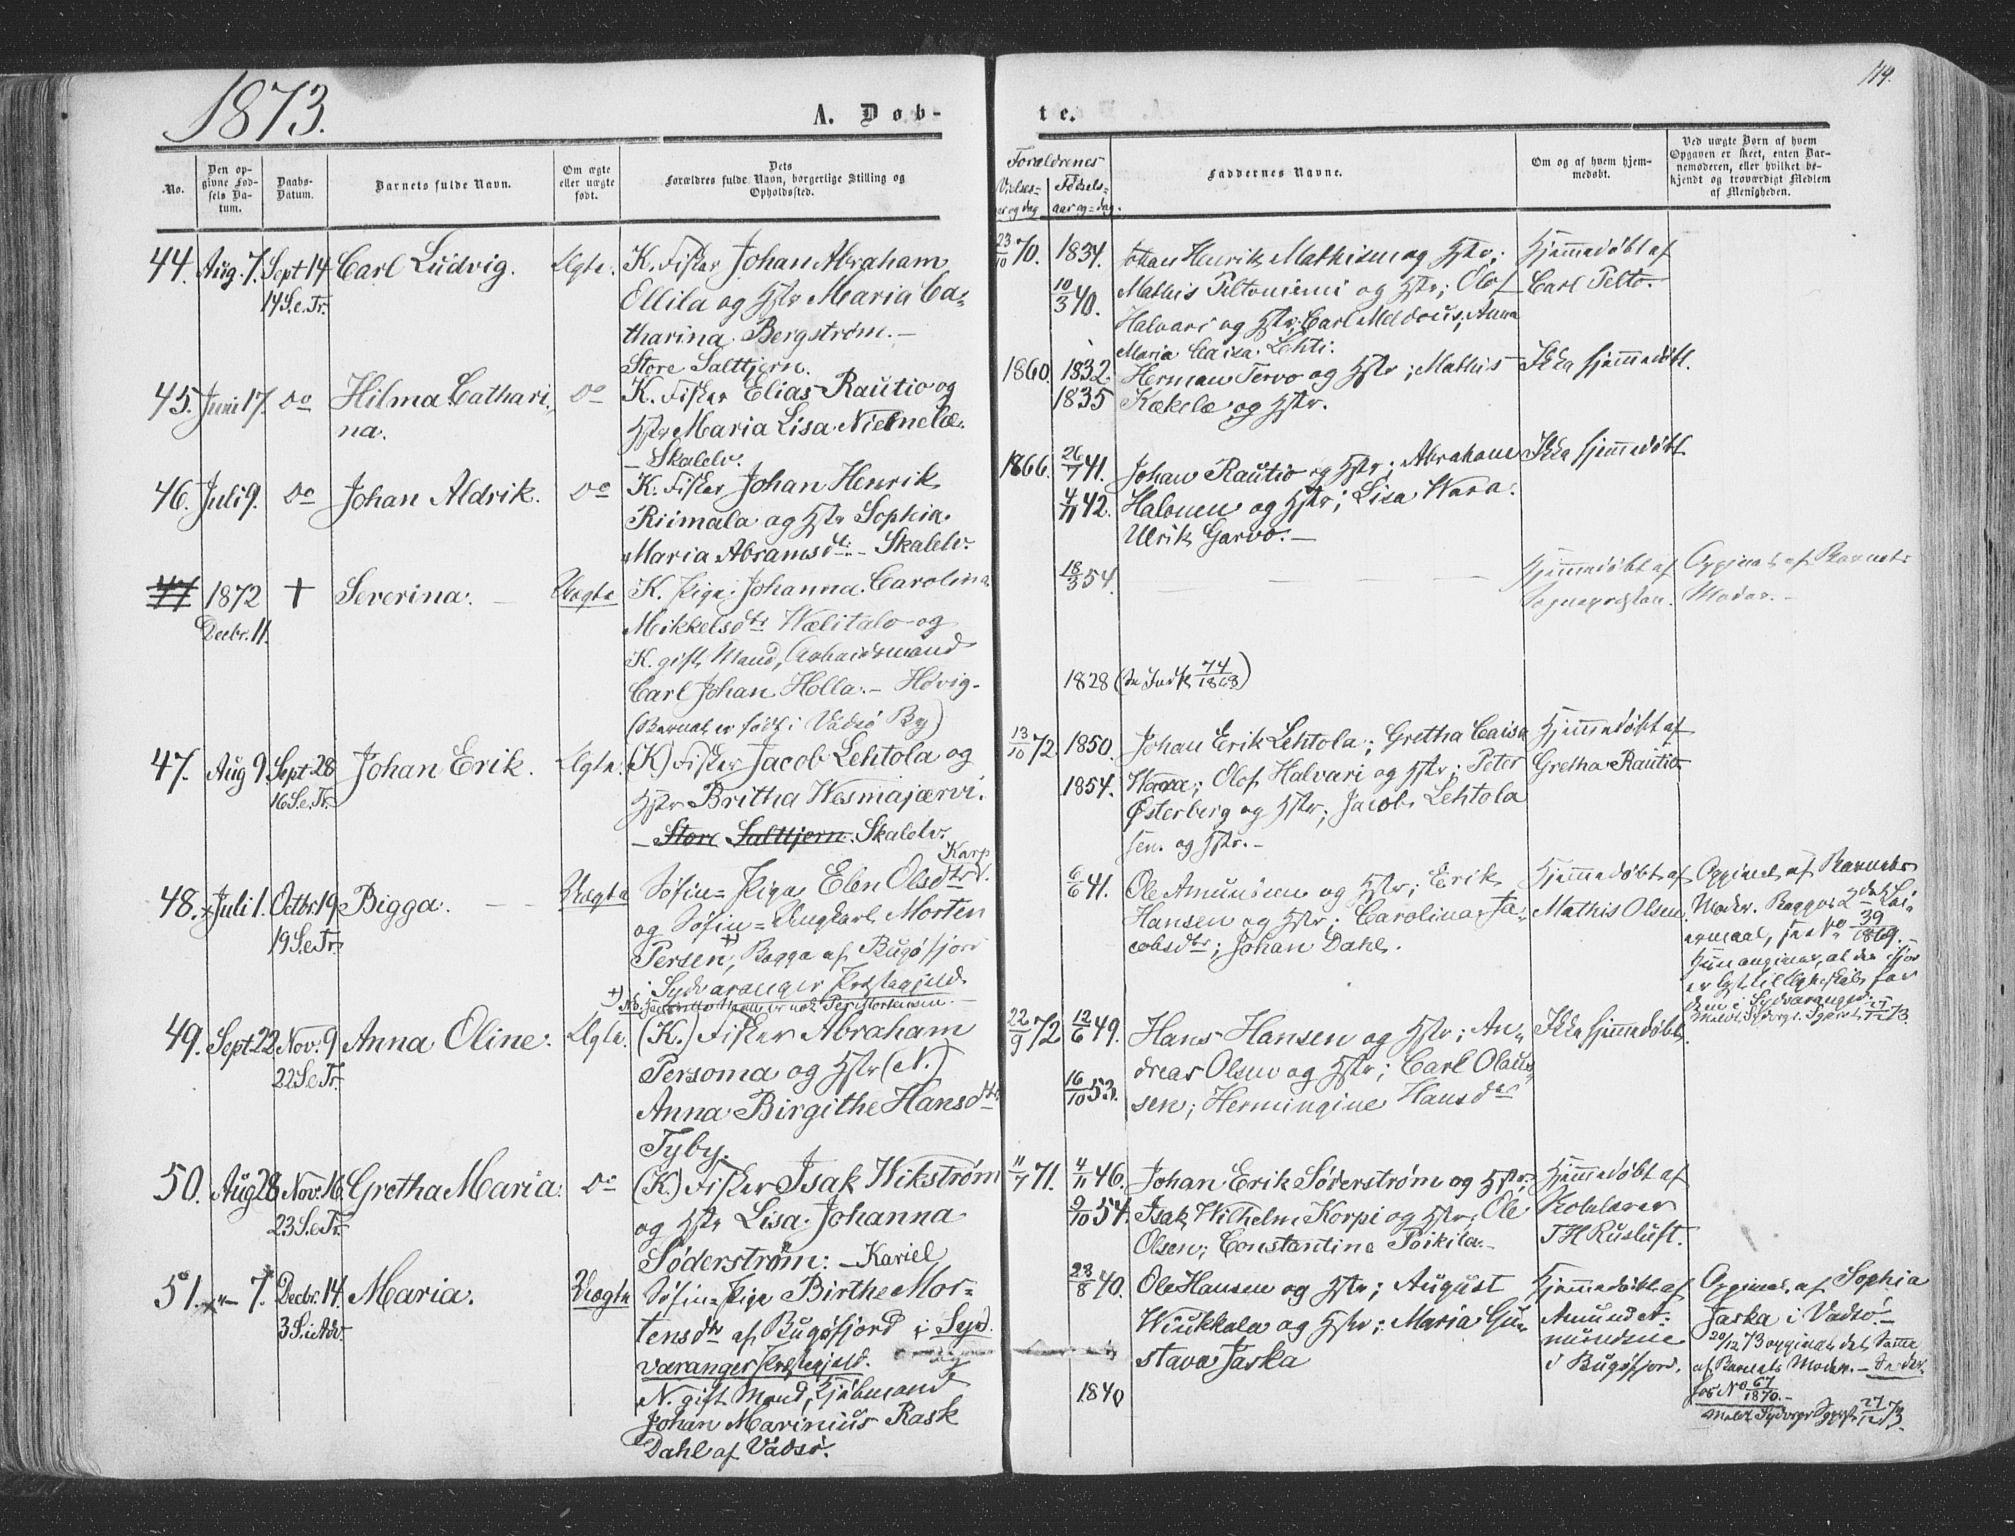 1873.
A. Døb-
te.
119.
No.
Den op-
givne Fød-
sels Da-
tum.
Daabs-
Datum.
Barnets fulde Navn.
Om ægte
eller uægte
født.
Dets
Forældres fulde Navn, borgerlige Stilling og
Opholdssted.
Forældrenes
Vielses-
aar og dag
Fødsels-
aar og dag.
Faddernes Navne.
Om og af hvem hjem-
medøbt.
Ved uægte Børn af hvem
Opgaven er skeet, enten Bar-
nemoderen, eller hvilket be-
kjendt og troværdigt Medlem
af Menigheden.
44. Aug. 7. Sept 14 Carl Ludvig. Ægte. K. Fisker Johan Abraham
14 S.e.Tr. Ellila og Hstr Maria Ca-
tharina Bergstrøm. –
Store Salttjern.
23/10 70. 1834. Johan Henrik Mathisen og Hstr; Hjemmedøbt af
10/3 40. Mathis Peltoniemi og Hstr; Olof Carl Pelto.
Halvari og Hstr; Carl Meldous; Anna
Maria Caisa Lehti.
45. Juni 17. Do Hilma Cathari- Do K. Fisker Elias Rautio og
na. Hstr Maria Lisa Niemelæ.
– Skalelv.
1860. 1832. Herman Tervo og Hstr; Mathis Ikke hjemmedøbt.
1835 Kækelæ og Hstr.
46. Juli 9. Do Johan Aldrik. Do K. Fisker Johan Henrik
Riimala og Hstr Sophia
Maria Abramsdtr. – Skalelv.
1866. 26/7 41. Johan Rautio og Hstr; Abraham Ikke hjemmedøbt
4/11 42. Halonen og Hstr; Lisa Wara.
Ulrik Garvo. –
47 1872 + Severina. – Uægte K. Pige Johanna Carolina
Decbr. 11. Mikkelsdtr Wælitalo og
K. gift Mand, Arbeidsmand
Carl Johan Holla. – Høvig.
(Barnet er født i Vadsø By)
18/3 54. – – – Hjemmedøbt af Opgivet af Barnets
Sognepresten. Moder. –
1828 (Se Indk 74/1868)
47. Aug 9. Sept 28 Johan Erik. Ægte. (K.) Fisker Jacob Lehtola og
16 S.e.Tr. Hstr Britha Wesmajærvi.
– Store Salttjern. Skalelv.
13/10 72. 1850. Johan Erik Lehtola; Gretha Caisa Hjemmedøbt af
1854. Wara; Olof Halvari og Hstr; Peter Gretha Rautio
Østerberg og Hstr; Jacob Lehtola
sen. og Hstr. –
48. × Juli 1. Octbr 19 Bigga. – – Uægte Søfin = Pige Elen Olsdtr Karp
19 S.e.Tr. og Søfin = Ungkarl Morten
Persen, +) Begge af Bugøfjord
i Sydvaranger Præstegjeld.
6/6 41. Ole Amundsen og Hstr; Erik Hjemmedøbt af Opgivet af Barnets
Hansen og Hstr; Carolina Ja- Mathis Olsen. Moder. Begges 2det Lei-
cobsdtr; Johan Dahl. ermaal, see No 39/1869. –
49. Sept 22 Nov. 9 Anna Oline. Ægte. (K.) Fisker Abraham
22 S.e.Tr. Persoma og Hstr (N.)
Anna Birgithe Hansdtr
Tyby.
22/9 72 12/6 49. Hans Hansen og Hstr; An- Ikke hjemmedøbt.
16/10 53. dreas Olsen og Hstr; Carl Olaus-
sen; Hermingine Hansdtr
50. Aug 28 Nov. 16. Gretha Maria. Do (K.) Fisker Isak Wikstrøm
23 S.e.Tr. og Hstr Lisa Johanna
Søderstrøm: – Kariel
11/7 71. 4/11 46. Johan Erik Søderstrøm og Hstr; Hjemmedøbt af
9/10 54. Isak Wilhelm Korpi og Hstr; Ole Kobelærer
Olsen; Constantine Poikila. – T H Rusluft.
51. × – 7. Decbr. 14. Maria. Uægte Søfin = Pige Birthe Mor-
3 S.i Adv tensdtr af Bugøfjord i Syd-
varanger Præstegjeld.
N. gift Mand, Kjøbmand
Johan Marinius Rask
Dahl af Vadsø.
28/8 40. Ole Hansen og Hstr; August Hjemmedøbt af Opgivet af Sophia
Wiukkala og Hstr; Maria Gu- Amund A- Jaska i Vadsø. –
stava Jaska mundsen 20/12 73 opgivet det Samme
i Bugøfjord. af Barnets Moder. –
1840 No 67/1870. –